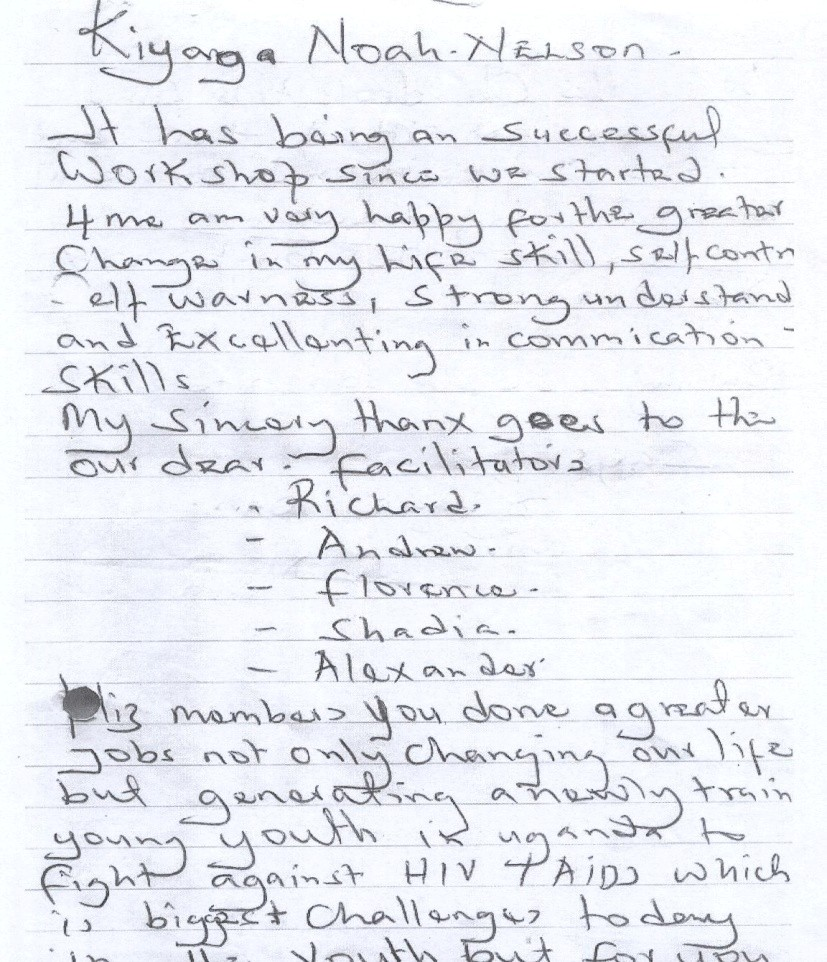 Kiyaga Noah-Nelson -
It has being an successful
Workshop since we started.
4 me am very happy for the greater
Change in my Life skill, self contr
- elf warness, strong understand
and Excellenting in commication -
Skills
My Sincery thanx goes to the
our dear :- facilitators
- Richard.
- Andrew.
- florence -
- Shadia.
- Alexander
pliz members you done a greater
Jobs not only changing our life
but generating a newly train
young youth in uganda to
fight against HIV + AiDs which
is biggest Challenges todeny
in the youth but for you